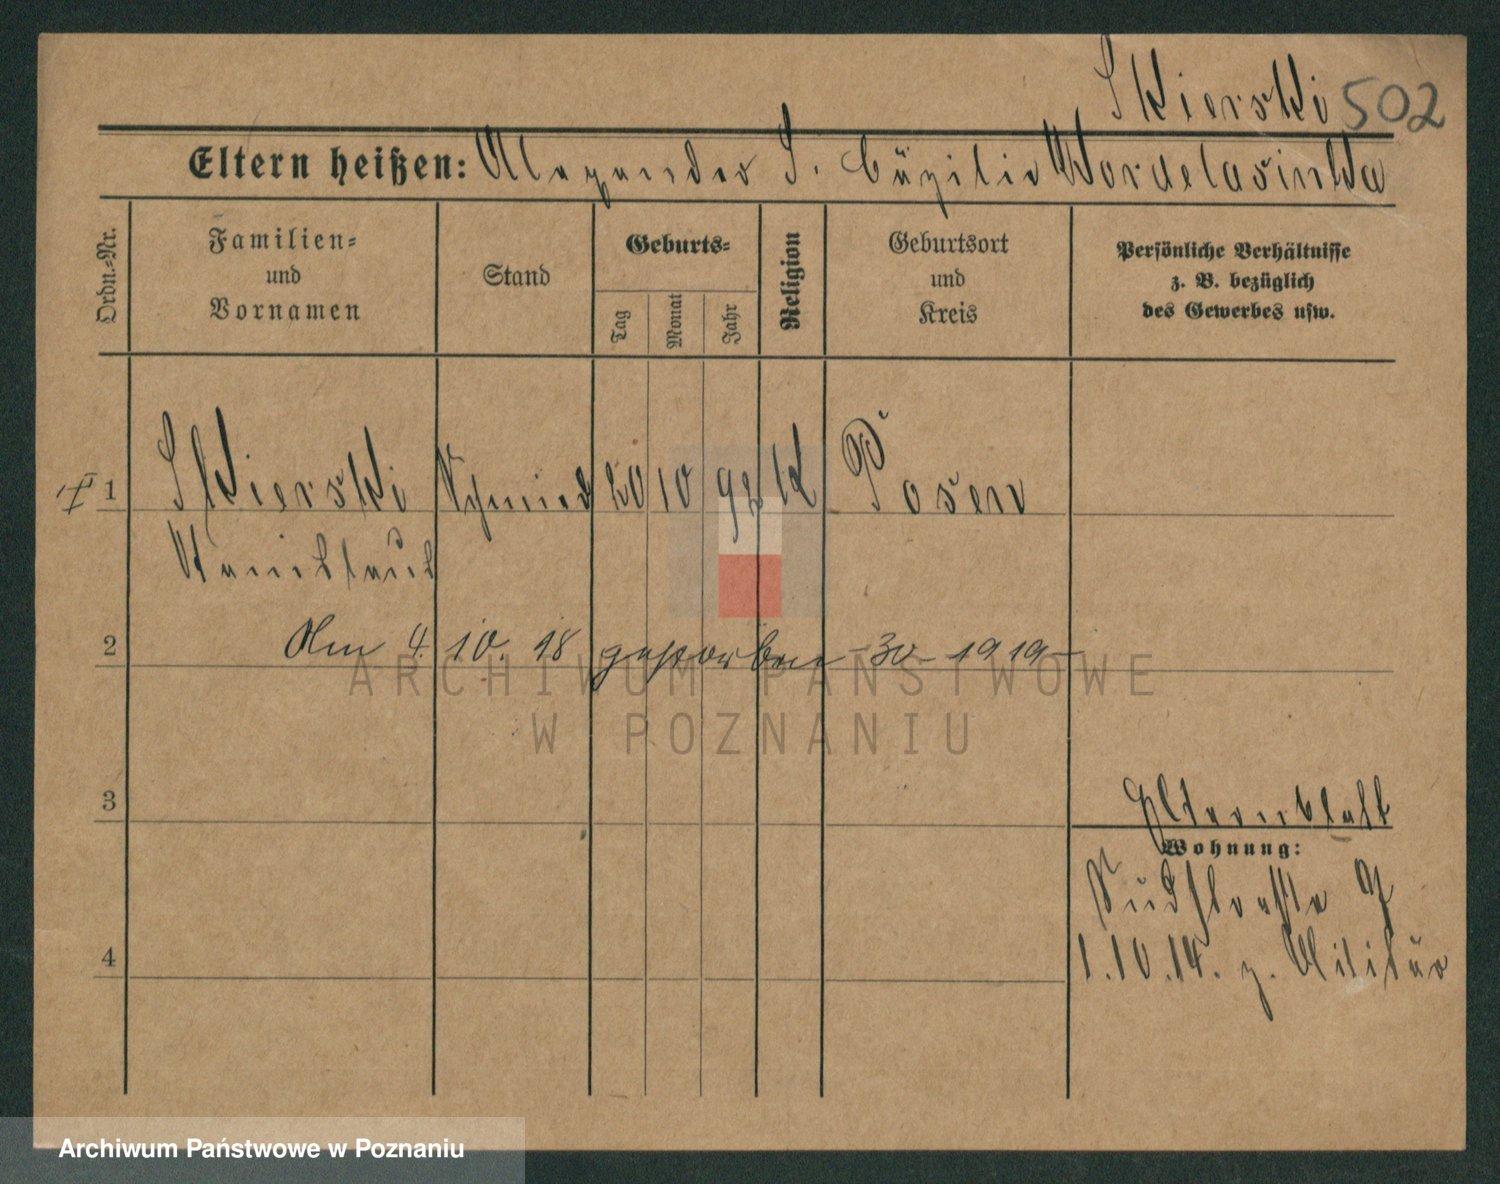 Skierski 502
Eltern heißen: Alexander S. Cäzilie Wordelasinska
Ordn.-Nr.
Familien- und Vornamen
Stand
Geburts-
Tag
Monat
Jahr
Religion
Geburtsort und Kreis
Persönliche Verhältnisse z. B. bezüglich des Gewerbes usw.
1 Skierski Schmied 20 10 92 K Posen
Stanislaus
2 Am 4. 10. 18 gestorben -30- 1919-
3
Elternblatt
Wohnung:
Südstraße 9
4
1.10.14. z. Militär
ARCHIWUM PAŃSTWOWE
W POZNANIU
Archiwum Państwowe w Poznaniu